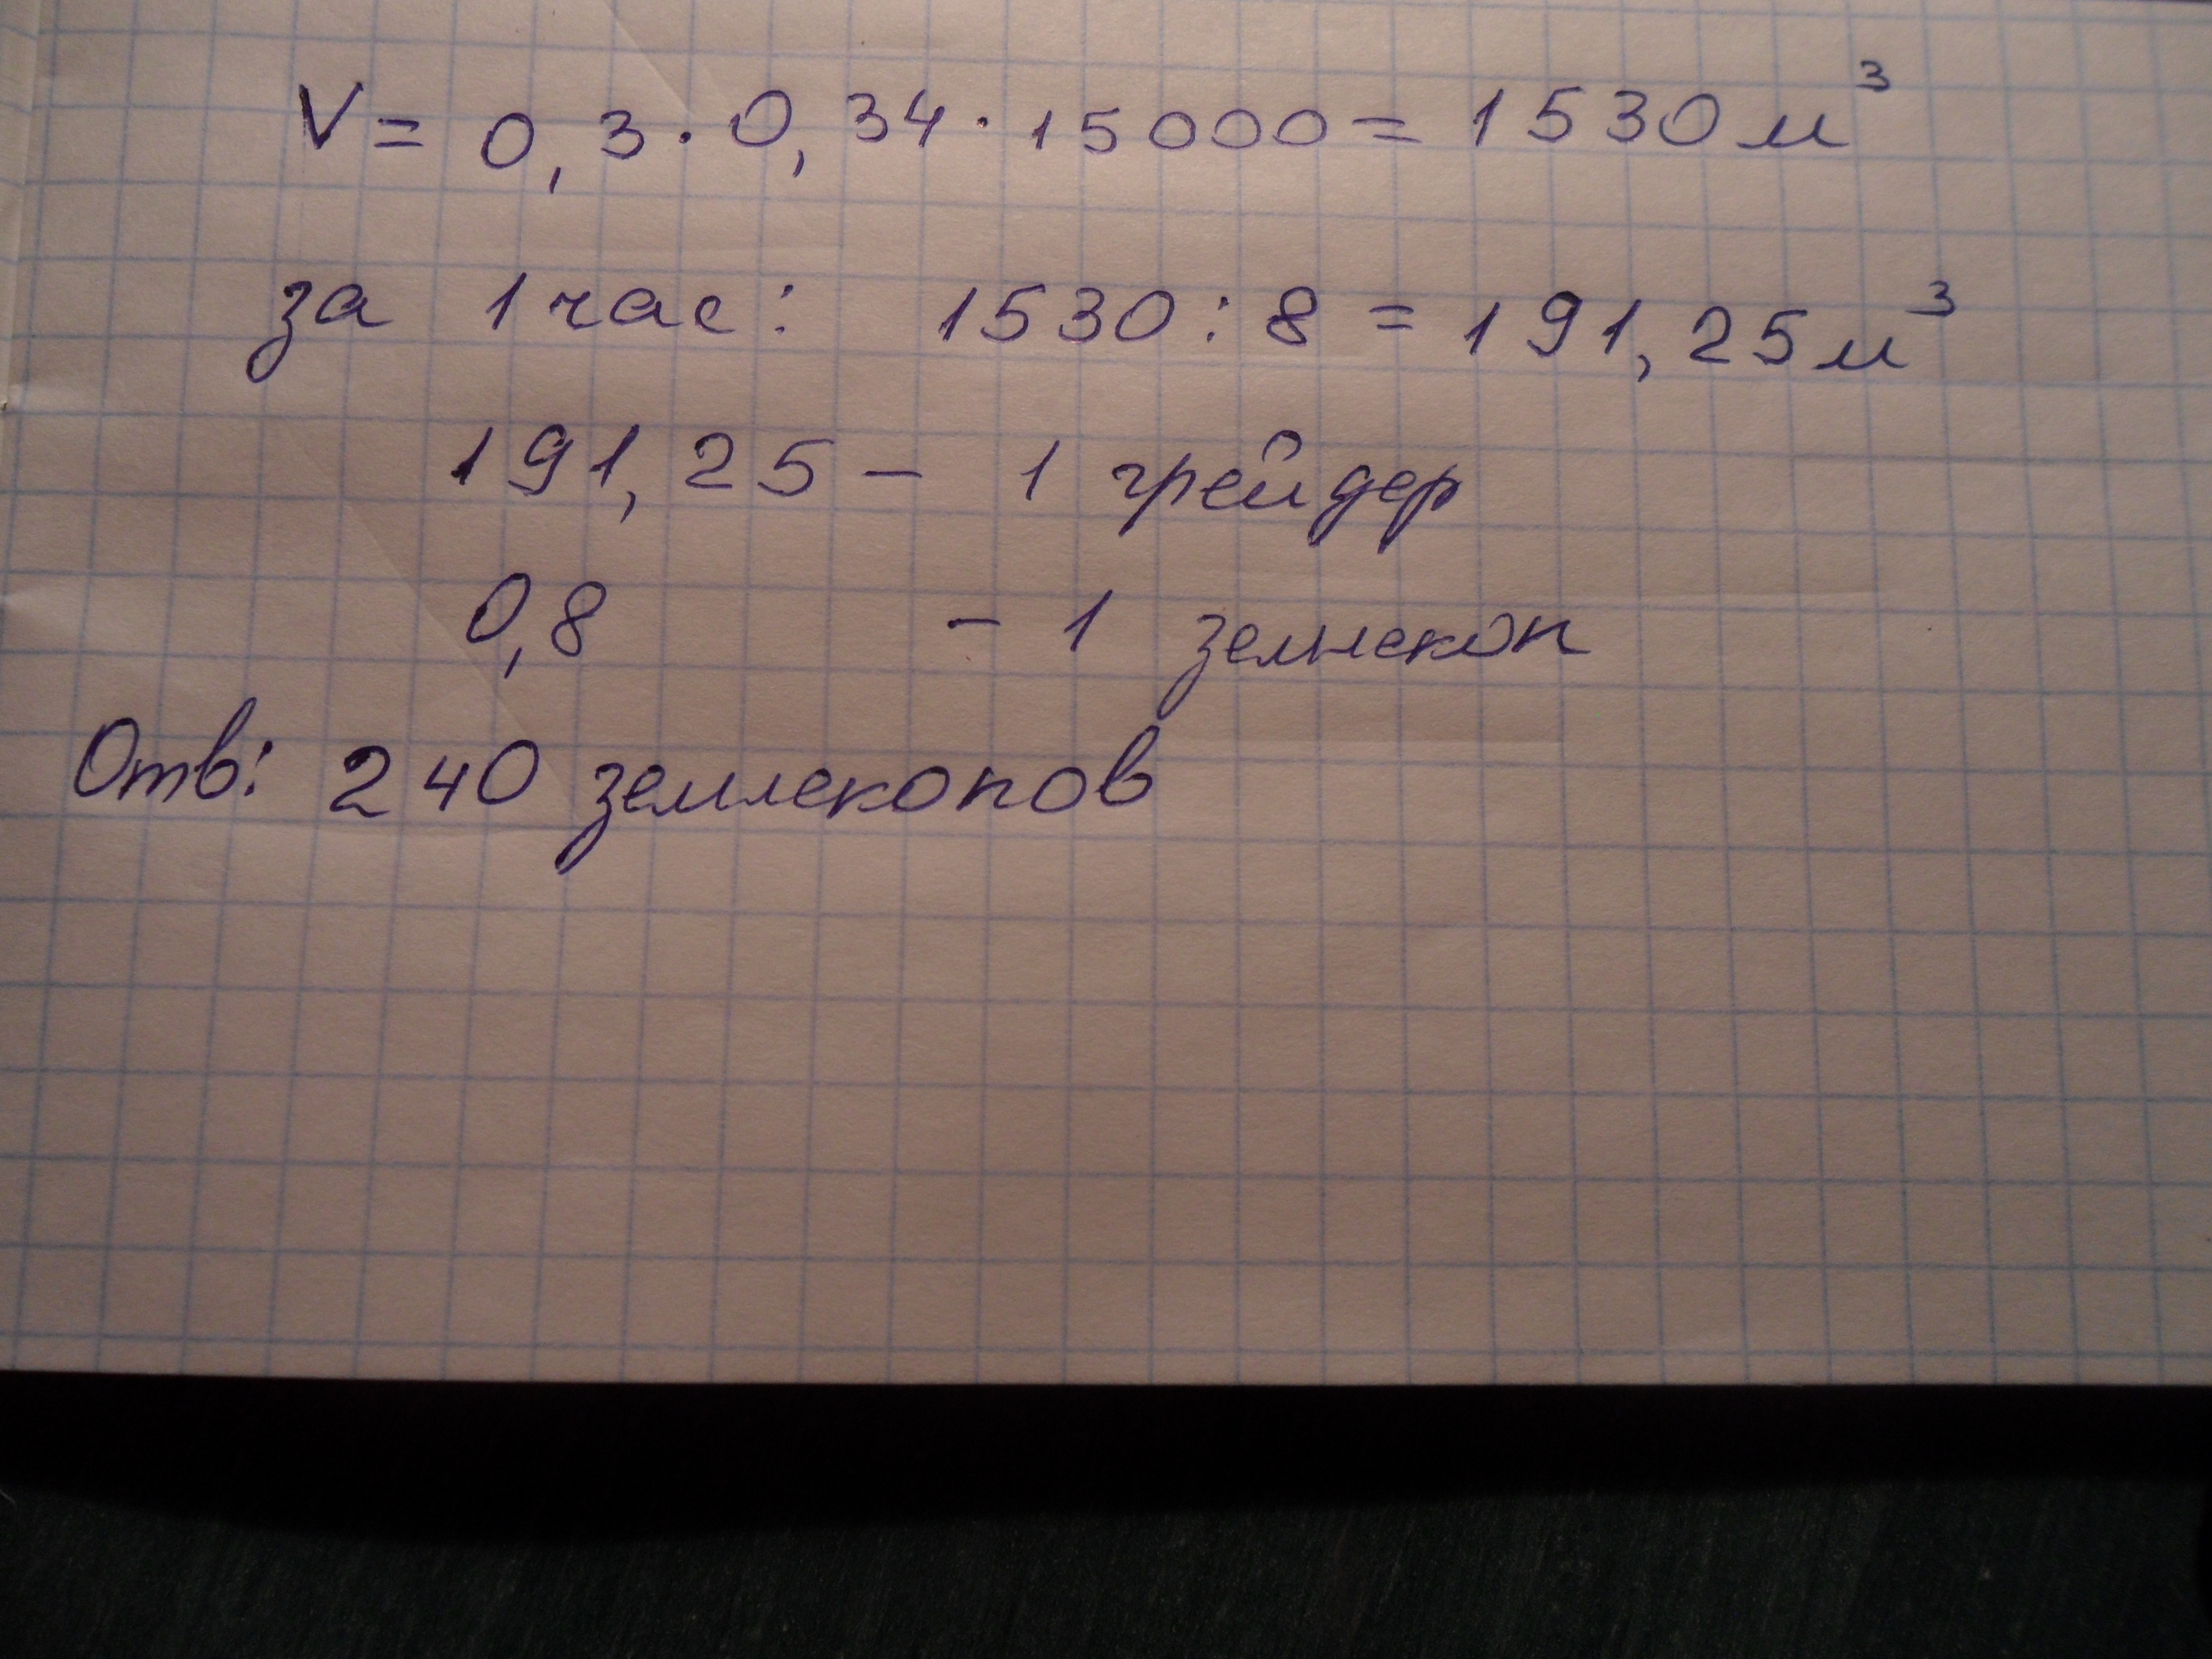 V = 0,3 · 0,34 · 15000 = 1530 м³
за 1 час: 1530 : 8 = 191,25 м³
191,25 – 1 грейдер
0,8 – 1 землекоп
Отв: 240 землекопов